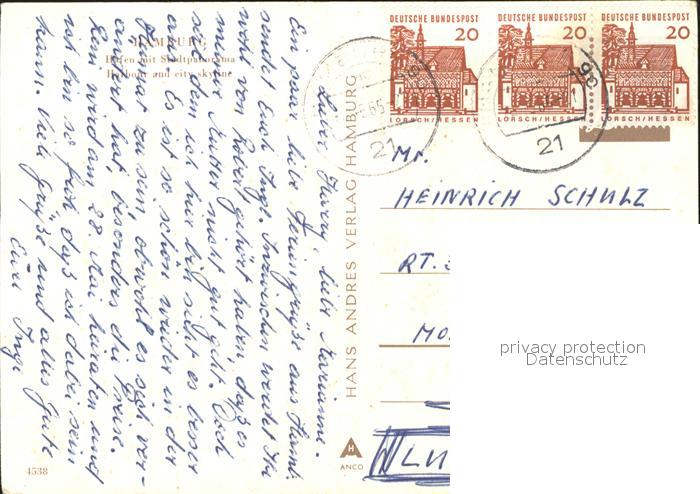 HAMBURG
Hafen mit Stadtpanorama
Harbour and city skyline
Lieber Harry, liebe Marianne.
Ein paar liebe Feriengrüße aus Hamb.
sendet Euch Inge. Inzwischen werdet Ihr
wohl von Robert gehört haben, daß es
meiner Mutter nicht gut geht. Doch
seitdem ich hier bin sieht es besser
aus. Es ist so schön wieder in der
zu sein, obwohl es sich ver-
ändert hat, besonders die Preise.
wird am 28. Mai heiraten und
ich bin so froh, daß ich dabei sein
kann. Viele Grüße und alles Gute
Eure Inge
4538
HANS ANDRES VERLAG HAMBURG
H A
ANCO
DEUTSCHE BUNDESPOST
20
LORSCH/HESSEN
DEUTSCHE BUNDESPOST
20
LORSCH/HESSEN
DEUTSCHE BUNDESPOST
20
LORSCH/HESSEN
65
21
21
Mr.
HEINRICH SCHULZ
RT.
MO
privacy protection
Datenschutz